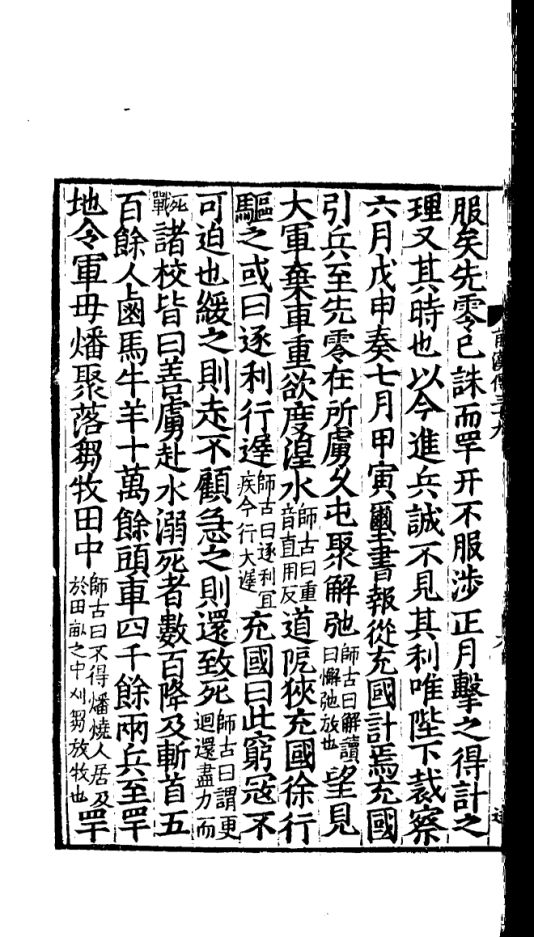 服矣先零已誅而䍐开不服涉正月擊之得計之
理又其時也以今進兵誠不見其利唯陛下裁察
六月戊申奏七月甲寅璽書報從充國計焉充國
引兵至先零在所虜久屯聚解弛師古曰解讀曰懈弛放也望見
大軍棄車重欲度湟水師古曰重音直用反道阨狹充國徐行
驅之或曰逐利行遟師古曰逐利宜疾今行大遟充國曰此窮寇不
可迫也緩之則走不顧急之則還致死師古曰謂更迴還盡力而
死戰諸校皆曰善虜赴水溺死者數百降及斬首五
百餘人鹵馬牛羊十萬餘頭車四千餘兩兵至䍐
地令軍毋燔聚落芻牧田中師古曰不得燔燒人居及於田畝之中刈芻放牧也䍐